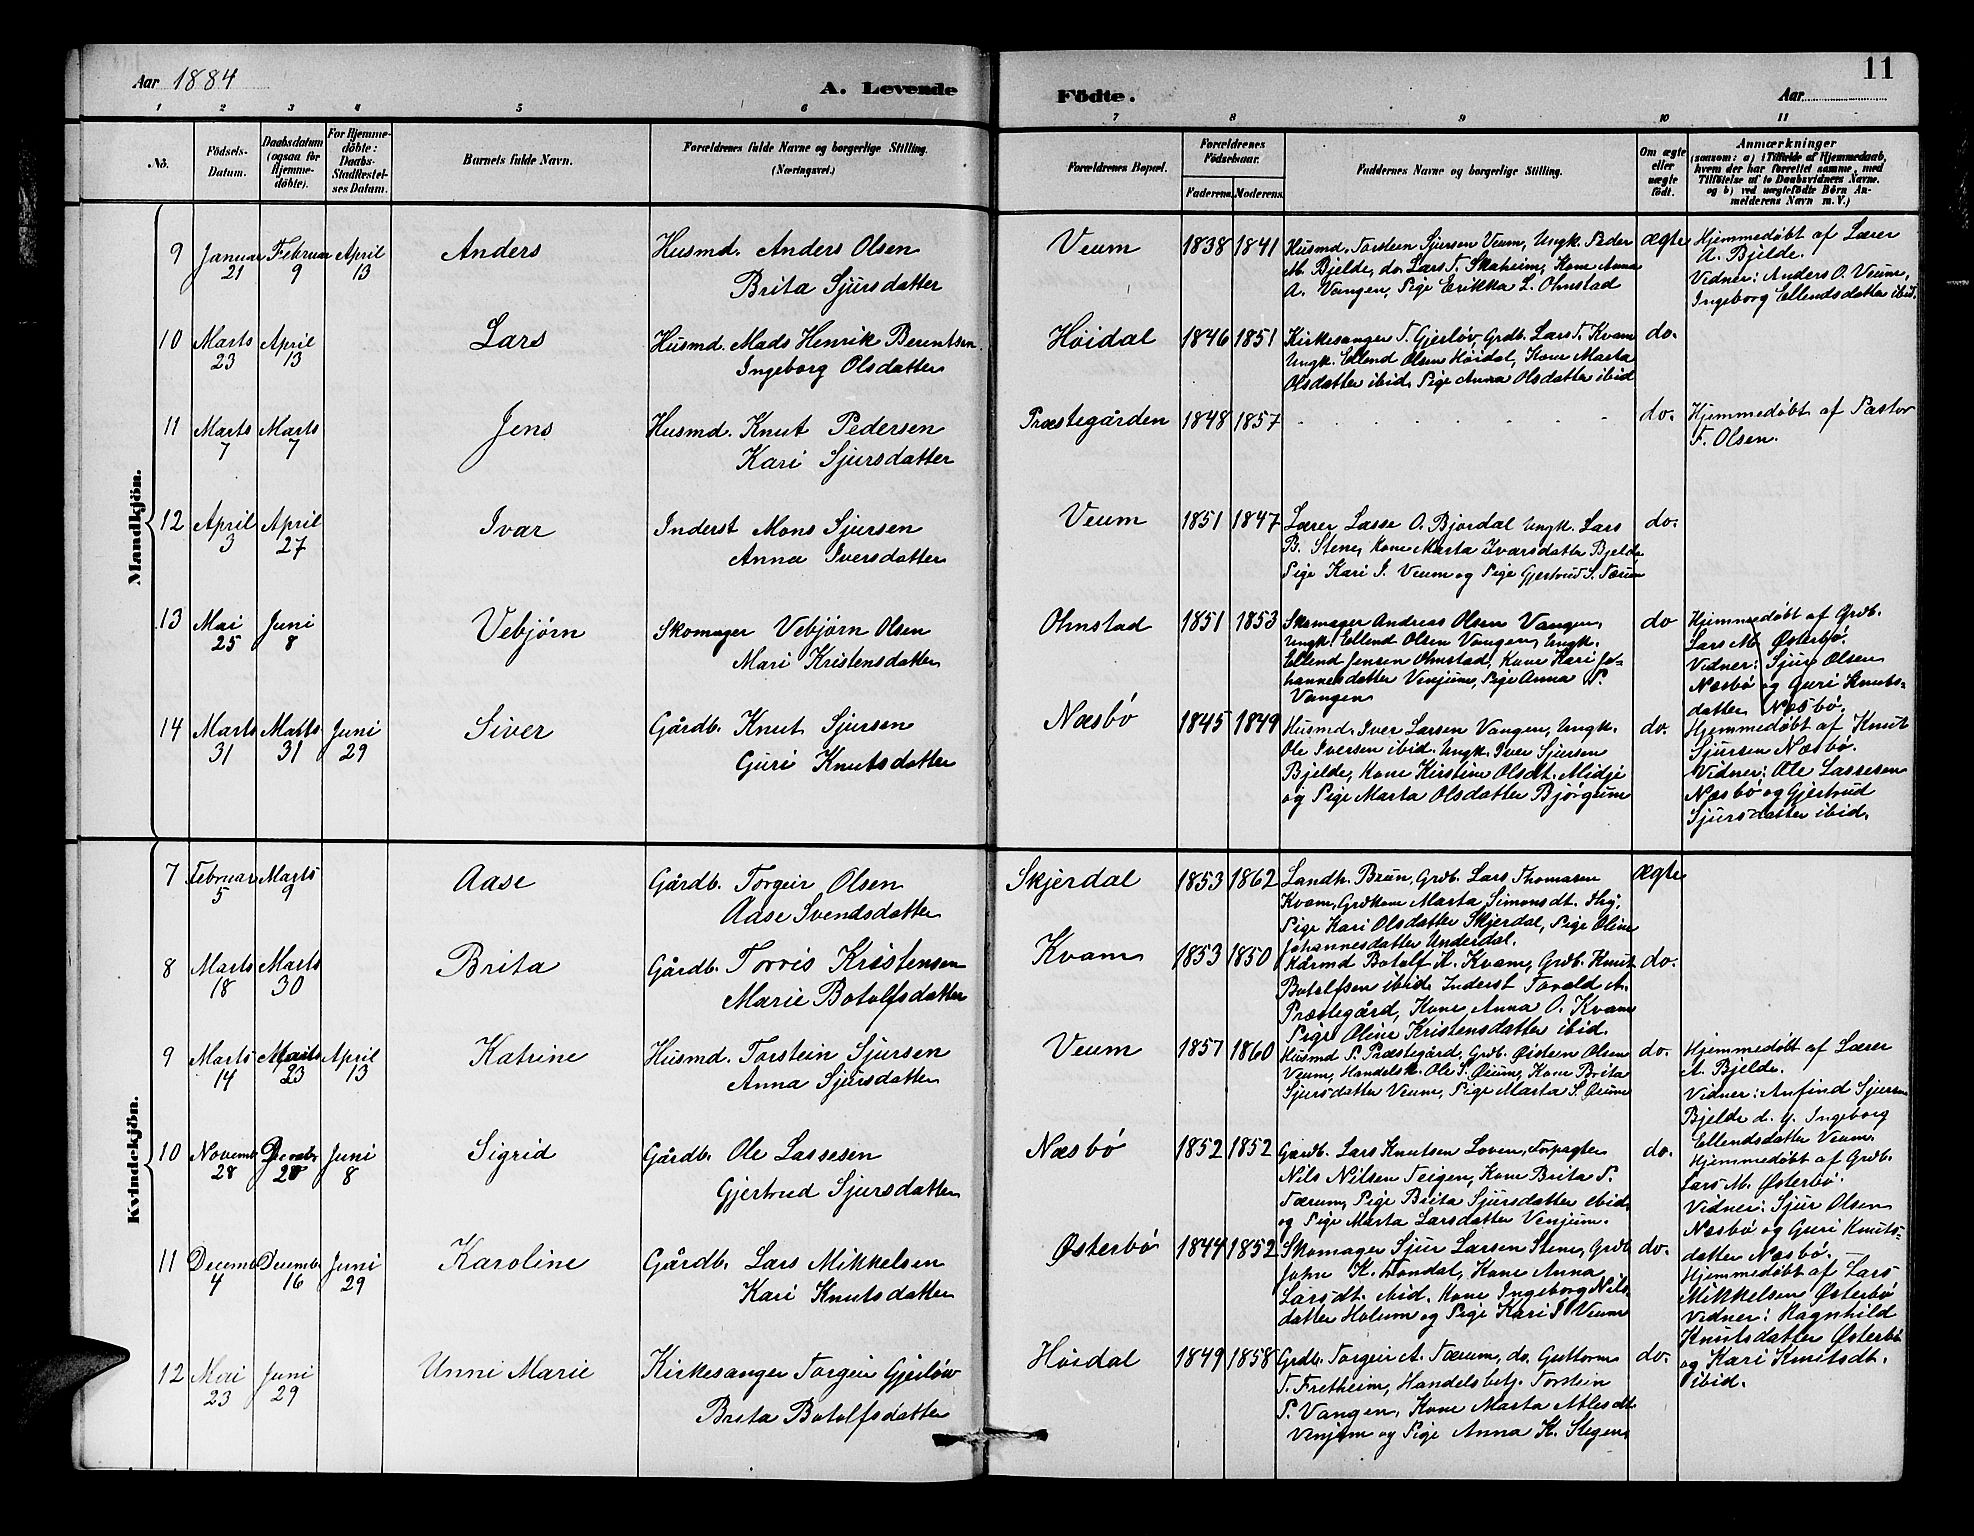 Aar 1884
A. Levende
Födte.
Aar
11
1 2 3 4 5 6 7 8 9 10 11
No.
Födsels-
Datum.
Daabsdatum
(ogsaa for
Hjemme-
döbte).
For Hjemme-
döbte:
Daabs-
Stadfæstel-
ses Datum.
Barnets fulde Navn.
Forældrenes fulde Navne og borgerlige Stilling.
(Næringsvei.)
Forældrenes Bopæl.
Forældrenes
Födselsaar.
Faderens. Moderens.
Faddernes Navne og borgerlige Stilling.
Om ægte
eller
uægte
födt.
Anmærkninger
(saasom: a) i Tilfælde af Hjemmedaab,
hvem der har forrettet samme, med
Tilföielse af to Daabsvidners Navne.
og b) ved uægtefödte Börn An-
melderens Navn m. V.)
Mandkjön.
9 Januar 21 Februar 9 April 13 Anders
Husmd. Anders Olsen
Brita Sjursdatter
Veum 1838 1841
Husmd. Torstein Sjursen Veum, Ungk. Peder
M. Bjelde, do. Lars T. Skaheim, Kone Anna
A. Vangen, Pige Erikka L. Ohnstad
ægte
Hjemmedøbt af Lærer
A. Bjelde.
Vidner: Anders O. Veum,
Ingeborg Ellendsdatter ibid.
10 Marts 23 April 13 Lars
Husmd. Mads Henrik Berentsen
Ingeborg Olsdatter
Høidal 1846 1851
Kirkesanger T. Gjerløv, Grdb. Lars T. Kvam
Ungk. Ellend Olsen Høidal, Kone Marta
Olsdatter ibid, Pige Anna Olsdatter ibid
do.
11 Marts 7 Marts 7 Jens
Husmd. Knut Pedersen
Kari Sjursdatter
Præstegården 1848 1857
do.
Hjemmedøbt af Pastor
F. Olsen.
12 April 3 April 27 Ivar
Inderst Mons Sjursen
Anna Iversdatter
Veum 1851 1847
Lærer Lasse O. Bjørdal Ungk. Lars
B. Stene, Kone Marta Ivarsdatter Bjelde
Pige Kari I. Veum og Pige Gjertrud S. Tærum
do.
13 Mai 25 Juni 8 Vebjørn
Skomager Vebjørn Olsen
Mari Kristensdatter
Ohnstad 1851 1853
Skomager Andreas Olsen Vangen,
Ungk. Ellend Olsen Vangen, Ungk.
Ellend Jensen Ohnstad, Kone Kari Jo-
hannesdatter Venjum, Pige Anna P.
Vangen
do
Hjemmedøbt af Grdb.
Lars M. Østerbø.
Vidner: Sjur Olsen
Næsbø og Guri Knuts-
datter Næsbø.
14 Marts 31 Marts 31 Juni 29 Siver
Gårdb. Knut Sjursen
Guri Knutsdatter
Næsbø 1845 1849
Husmd. Iver Larsen Vangen, Ungk.
Ole Iversen ibid. Ungk. Iver Sjursen
Bjelde, Kone Kirstine Olsdt. Midje
og Pige Marta Olsdatter Bjørgum
do.
Hjemmedøbt af Knut
Sjursen Næsbø.
Vidner: Ole Lassesen
Næsbø og Gjertrud
Sjursdatter ibid.
Kvindekjön.
7 Februar 5 Marts 9 Aase
Gårdb. Torgeir Olsen
Aase Svendsdatter
Skjerdal 1853 1862
Landh. Brun, Grdb. Lars Thomasen
Kvam, Grdkone Marta Simonsdt. Shj,
Pige Kari Olsdatter Skjerdal, Pige Oline
Johannesdatter Underdal.
ægte
8 Marts 18 Marts 30 Brita
Gårdb. Torris Kristensen
Marie Botolfsdatter
Kvam 1853 1850
Kårmd Botolf K. Kvam, Grdb. Knut
Botolfsen ibid, Inderst Torald A.
Præstegård, Kone Anna O. Kvam
Pige Oline Kristensdatter ibid.
do.
9 Marts 14 Marts 23 April 13 Katrine
Husmd. Torstein Sjursen
Anna Sjursdatter
Veum 1857 1860
Husmd P. Præstegård, Grdb. Øistein Olsen
Veum, Handelsk. Ole S. Øium, Kone Brita
Sjursdatter Veum, Pige Marta S. Øium
do.
Hjemmedøbt af Lærer
A. Bjelde.
Vidner: Anfind Sjursen
Bjelde d. y. Ingeborg
Ellendsdatter Veum.
10 Novemb. 28 Decemb. 28 Juni 8 Sigrid
Gårdb. Ole Lassesen
Gjertrud Sjursdatter
Næsbø 1852 1852
Gardb. Lars Knutsen Loven, Forpagter
Nils Nilsen Teigen, Kone Brita P.
Tærum, Pige Brita Sjursdatter ibid,
og Pige Marta Larsdatter Venjum.
do.
Hjemmedøbt af Grdb.
Lars M. Østerbø.
Vidner: Sjur Olsen
Næsbø og Guri Knuts-
datter Næsbø.
11 Decemb 4 Decemb 16 Juni 29 Karoline
Gårdb. Lars Mikkelsen
Kari Knutsdatter
Østerbø 1844 1852
Skomager Sjur Larsen Stene, Grdb.
John K. Tondal, Kone Anna
Larsdt. ibid, Kone Ingeborg Nils-
datter Holum og Pige Kari I Veum
do.
Hjemmedøbt af Lars
Mikkelsen Østerbø
Vidner: Ragnhild
Knutsdatter Østerbø
og Kari Knutsdt.
ibid.
12 Mai 23 Juni 29 Unni Marie
Kirkesanger Torgeir Gjerløw
Brita Botolfsdatter
Høidal 1849 1858
Grdb. Torgeir A. Tærum, do. Guttorm
T. Fretheim, Handelsbetj. Torstein
P. Vangen, Kone Marta Atlesdt
Venjum og Pige Anna K. Stegen,
do.